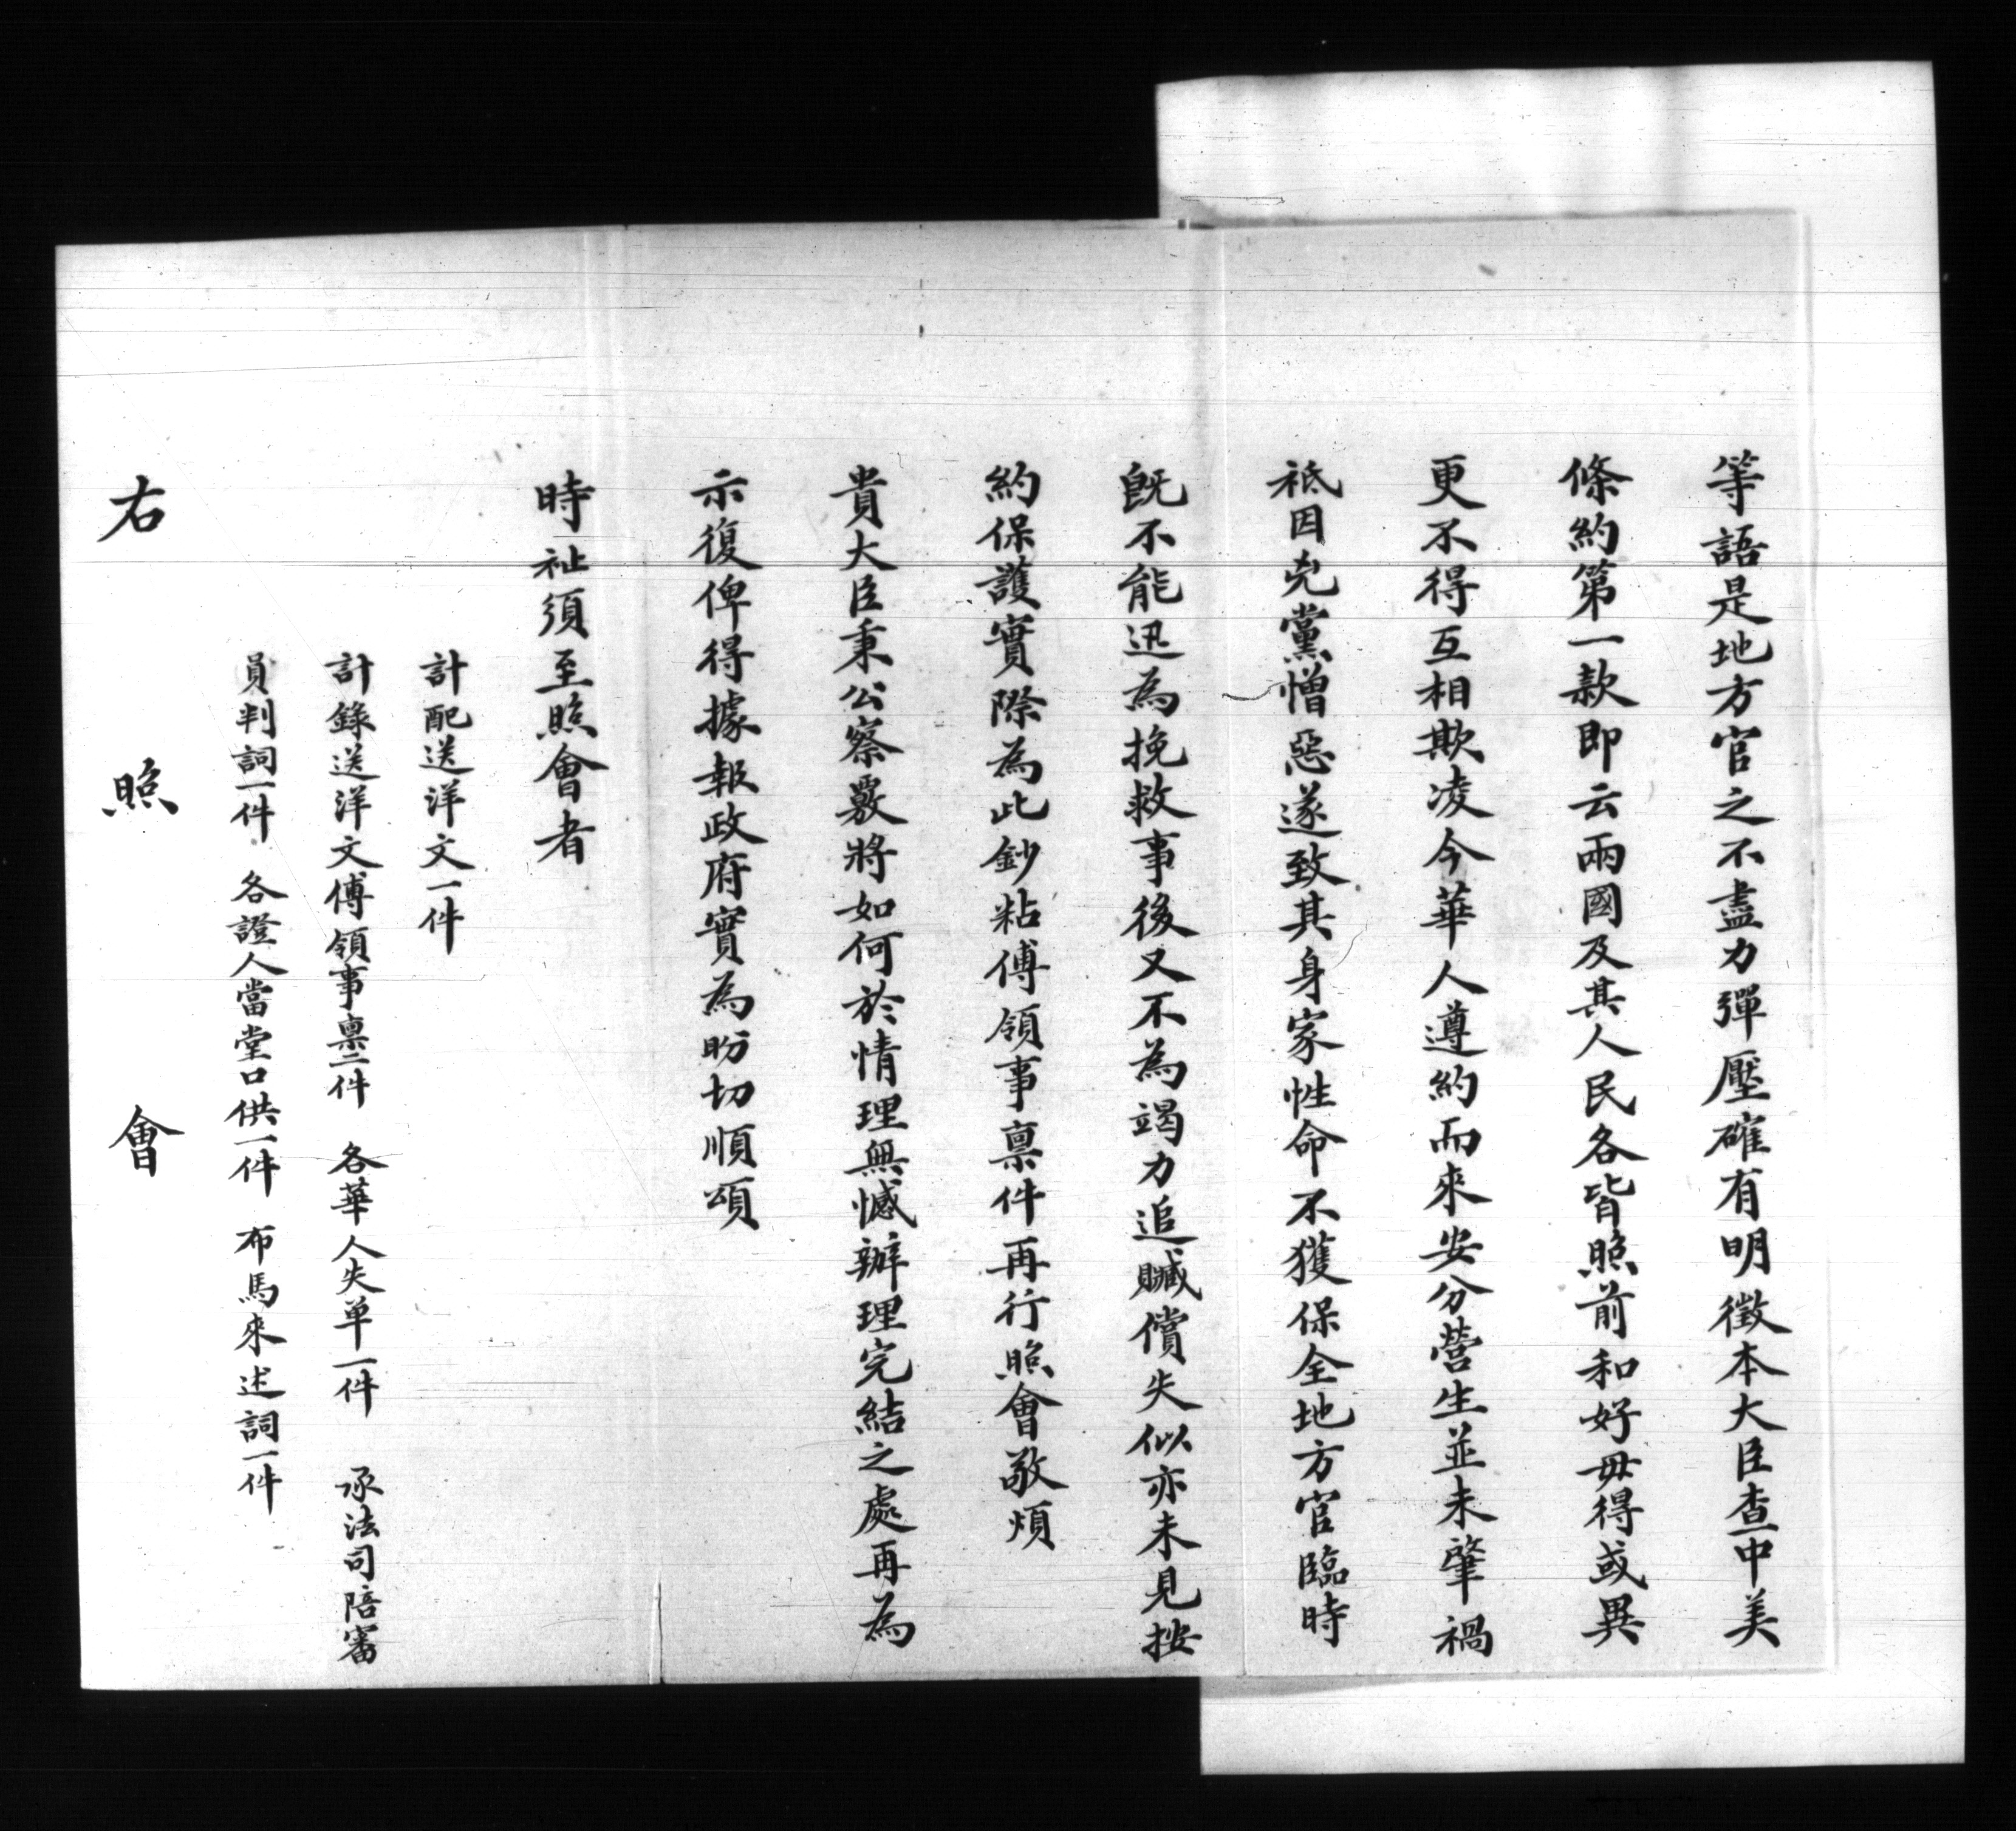 等語是地方官之不盡力彈壓確有明徵本大臣查中美
條約第一款即云兩國及其人民各皆照前和好毋得或異
更不得互相欺凌今華人遵約而來安分營生並未肇禍
祗因兇黨憎惡遂致其身家性命不獲保全地方官臨時
既不能迅為挽救事後又不為竭力追贓償失似亦未見按
約保護實際為此鈔粘傅領事稟件再行照會敬煩
貴大臣秉公察覈將如何於情理無憾辦理完結之處再為
示復俾得據報政府實為盼切順頌
時祉須至照會者
計配送洋文一件
計錄送洋文傅領事稟二件 各華人失单一件 承法司陪審
員判詞一件 各證人當堂口供一件 布馬來述詞一件
右照會